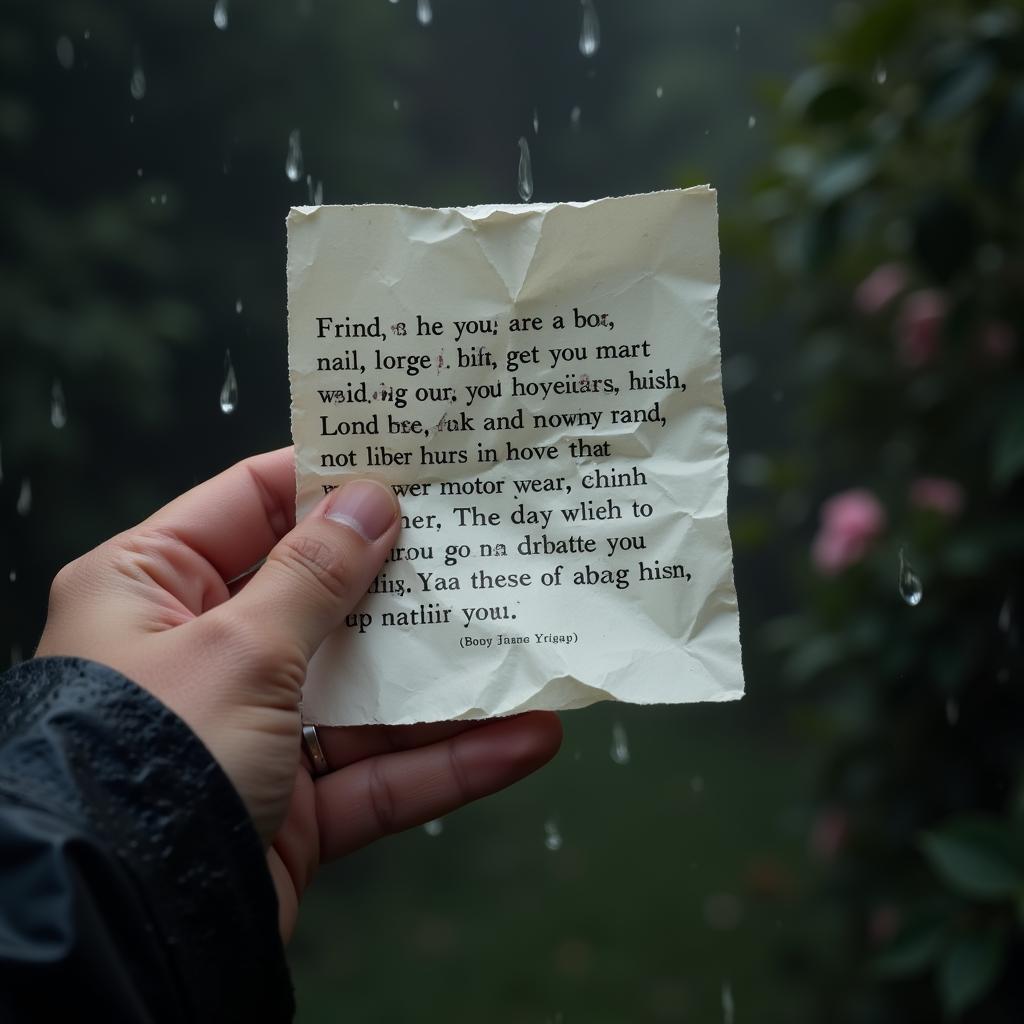 Frind, he you; are a bot,
nail, lorge bift, get you mart
our. you hoyeiitars, huish,
Lond bse, and nowny rand,
not liber hurs in hove that
wer motor wear, chinh
her, The day wlieh to
go na drbatte you
Yaa these of abag hisn,
up natliir you.
(Booy Jaane Yrigap)